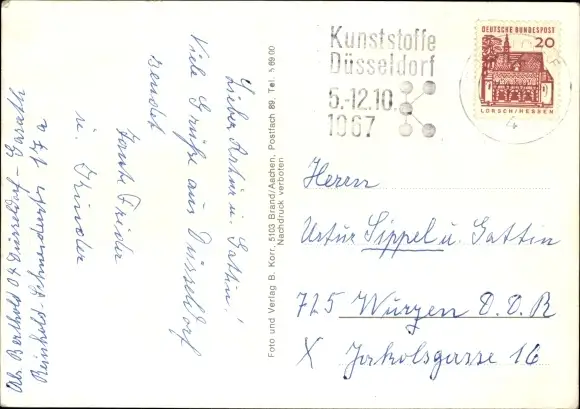 Lieber Artur u. Gattin!
Viele Grüße aus Düsseldorf
sendet
Tante Frieda
u. Kinder
Abs. Berthold 04 Düsseldorf - Garath
Reinhold-Schneiderstr 17a
Foto und Verlag B. Korr, 5103 Brand/Aachen, Postfach 89, Tel. 5 69 00
Nachdruck verboten
Kunststoffe
Düsseldorf
5.-12.10.
1967
DEUTSCHE BUNDESPOST
20
LORSCH/HESSEN
Herrn
Artur Sippel u. Gattin
725 Wurzen D.D.R
X Jakobsgasse 16